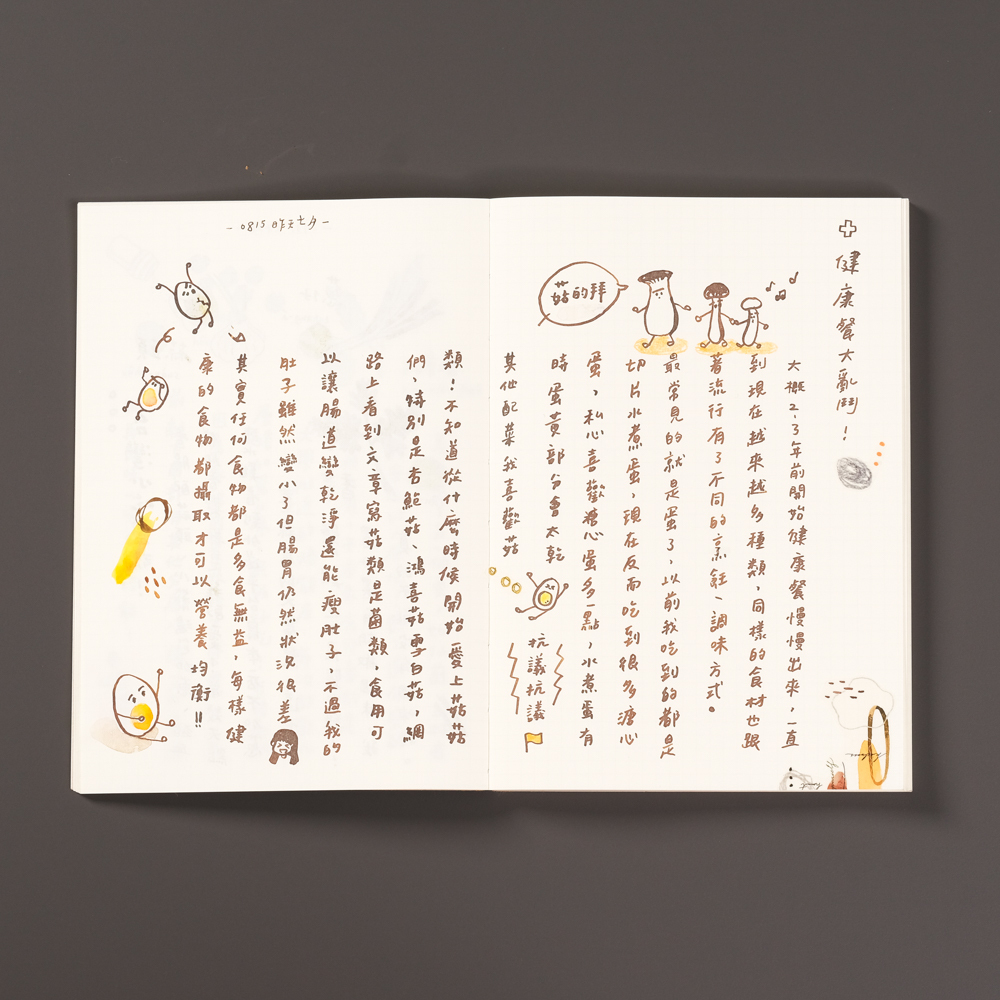 健康餐大亂鬥！
大概2、3年前開始健康餐慢慢出來，一直
到現在越來越多種類，同樣的食材也跟
著流行有了不同的烹飪、調味方式。
最常見的就是蛋了，以前我吃到的都是
切片水煮蛋，現在反而吃到很多溏心
蛋，私心喜歡糖心蛋多一點，水煮蛋有
時蛋黃部分會太乾
其他配菜我喜歡菇
菇的拜
抗議抗議
- 0815 昨天七夕 -
類！不知道從什麼時候開始愛上菇菇
們，特別是杏鮑菇、鴻喜菇雪白菇，網
路上看到文章寫菇類是菌類，食用可
以讓腸道變乾淨還能瘦肚子，不過我的
肚子雖然變小了但腸胃仍然狀況很差
其實任何食物都是多食無益，每樣健
康的食物都攝取才可以營養均衡!!